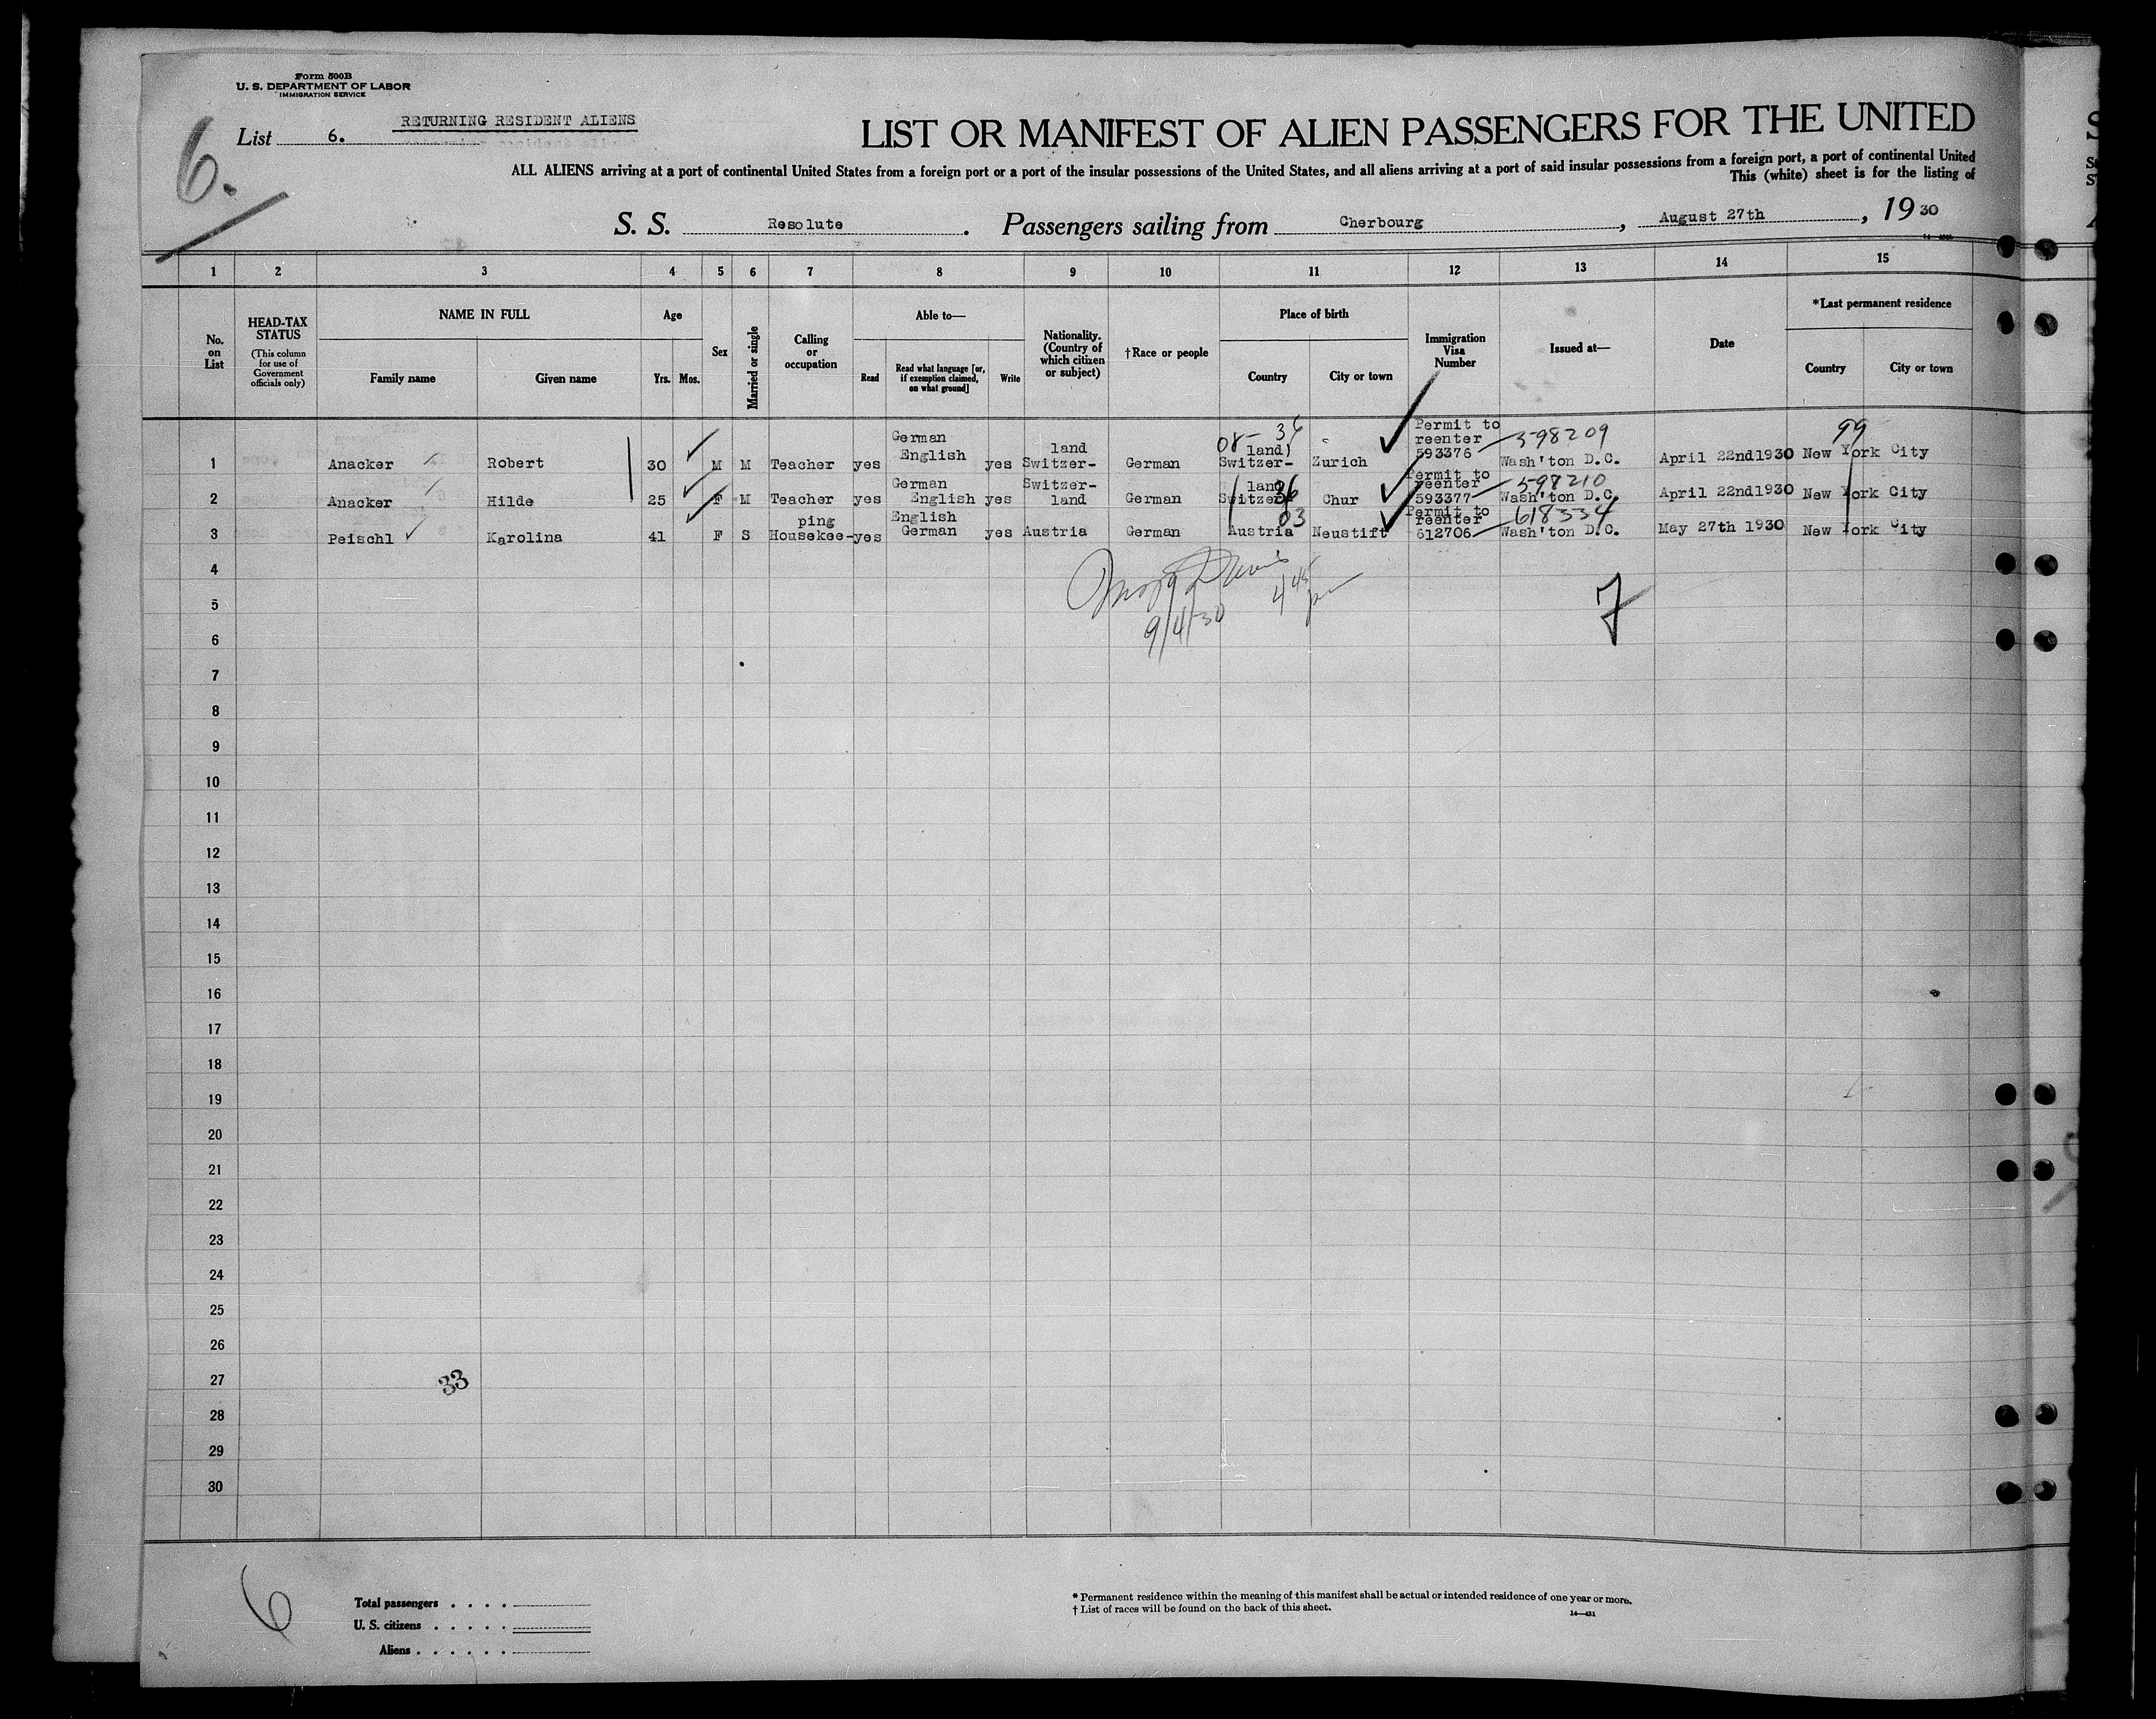 Form 500B
U. S. DEPARTMENT OF LABOR
IMMIGRATION SERVICE
RETURNING RESIDENT ALIENS
List 6.
6.
LIST OR MANIFEST OF ALIEN PASSENGERS FOR THE UNITED
ALL ALIENS arriving at a port of continental United States from a foreign port or a port of the insular possessions of the United States, and all aliens arriving at a port of said insular possessions from a foreign port, a port of continental United
This (white) sheet is for the listing of
S. S. Resolute. Passengers sailing from Cherbourg, August 27th, 1930
1 2 3 4 5 6 7 8 9 10 11 12 13 14 15
No. on List
HEAD-TAX STATUS
(This column for use of Government officials only)
NAME IN FULL
Family name Given name
Age
Yrs. Mos.
Sex
Married or single
Calling or occupation
Able to—
Read
Read what language [or, if exemption claimed, on what ground]
Write
Nationality. (Country of which citizen or subject)
†Race or people
Place of birth
Country City or town
Immigration Visa Number
Issued at—
Date
*Last permanent residence
Country City or town
German land 08- 36 land) Permit to reenter 598209 99
1 Anacker Robert 30 M M Teacher yes English yes Switzer- German Switzer- Zurich 593376 Wash'ton D.C. April 22nd1930 New York City
German Switzer- land 36 Permit to reenter 598210
2 Anacker Hilde 25 F M Teacher yes English yes land German Switzer- Chur 593377 Wash'ton D.C. April 22nd1930 New York City
ping English 03 Permit to reenter 618334
3 Peischl Karolina 41 F S Housekee- yes German yes Austria German Austria Neustift 612706 Wash'ton D.C. May 27th 1930 New York City
4
5
9/4/30 4 45 pm
7
6
7
8
9
10
11
12
13
14
15
16
17
18
19
20
21
22
23
24
25
26
27
33
28
29
30
6
Total passengers . . . .
U. S. citizens . . . . .
Aliens . . . . . .
* Permanent residence within the meaning of this manifest shall be actual or intended residence of one year or more.
† List of races will be found on the back of this sheet.
14—431